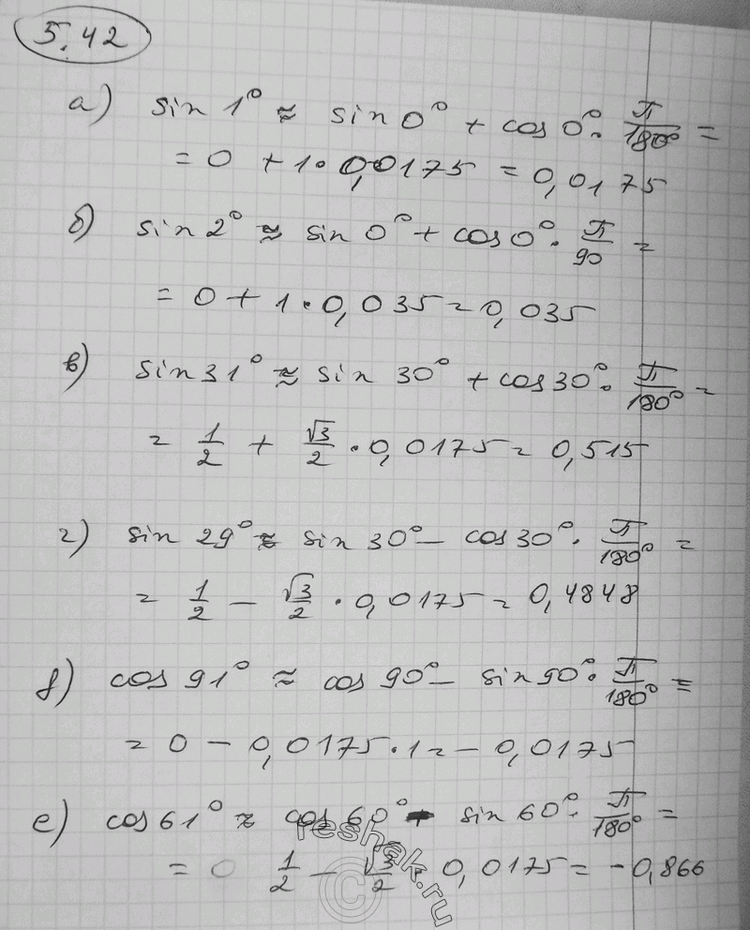 5.42
а) sin 1° ≈ sin 0° + cos 0° · π/180° =
= 0 + 1 · 0,0175 = 0,0175
б) sin 2° ≈ sin 0° + cos 0° · π/90 =
= 0 + 1 · 0,035 = 0,035
в) sin 31° ≈ sin 30° + cos 30° · π/180° =
= 1/2 + √3/2 · 0,0175 = 0,515
г) sin 29° ≈ sin 30° - cos 30° · π/180° =
= 1/2 - √3/2 · 0,0175 = 0,4848
д) cos 91° ≈ cos 90° - sin 90° · π/180° =
= 0 - 0,0175 · 1 = - 0,0175
е) cos 61° ≈ cos 60° - sin 60° · π/180° =
= 1/2 - √3/2 · 0,0175 = -0,866
reshak.ru